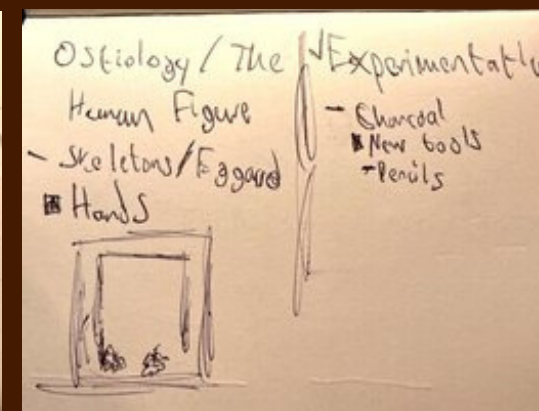 Ostiology / The
Human Figure
- Skeletons /
Hands
Experimentatio
- Charcoal
New tools
- Pencils